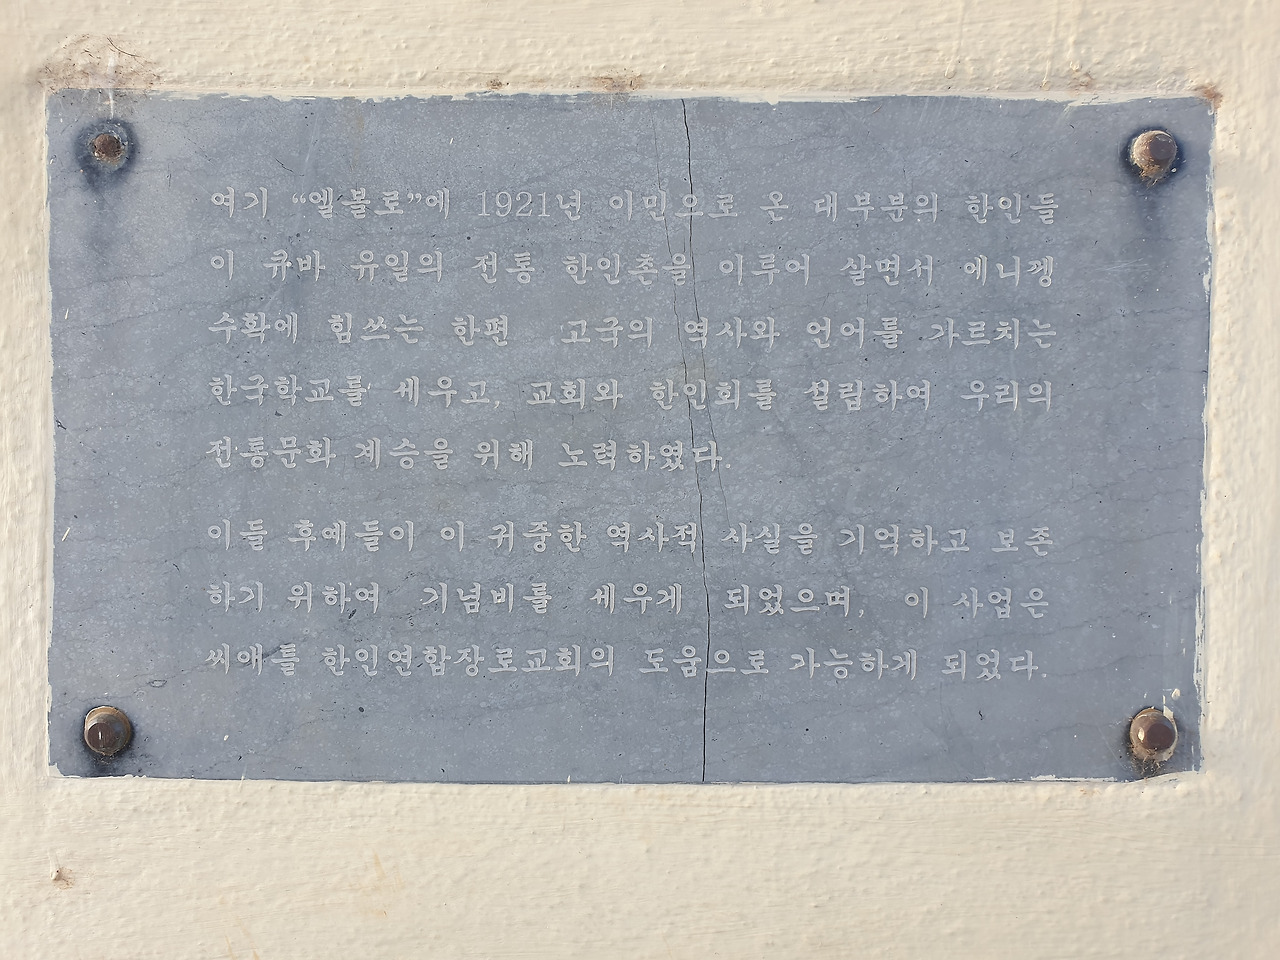 여기 “엘볼로”에 1921년 이민으로 온 대부분의 한인들
이 큐바 유일의 전통 한인촌을 이루어 살면서 에니껭
수확에 힘쓰는 한편 고국의 역사와 언어를 가르치는
한국학교를 세우고, 교회와 한인회를 설립하여 우리의
전통문화 계승을 위해 노력하였다.
이들 후예들이 이 귀중한 역사적 사실을 기억하고 보존
하기 위하여 기념비를 세우게 되었으며, 이 사업은
씨애틀 한인연합장로교회의 도움으로 가능하게 되었다.